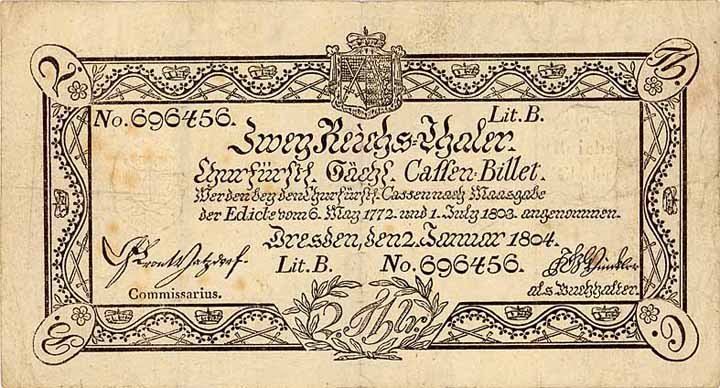 2. Th.
No. 696456. Lit. B.
Zwey Reichs=Thaler.
Churfürstl. Sächs. Cassen-Billet.
Werden bey den Churfürstl. Cassen nach Maasgabe
der Edicte vom 6. May 1772. und 1. July 1803. angenommen.
Dresden, den 2. Januar 1804.
Lit. B. No. 696456.
Commissarius.
als Buchhalter.
2 Thlr.
S. C.